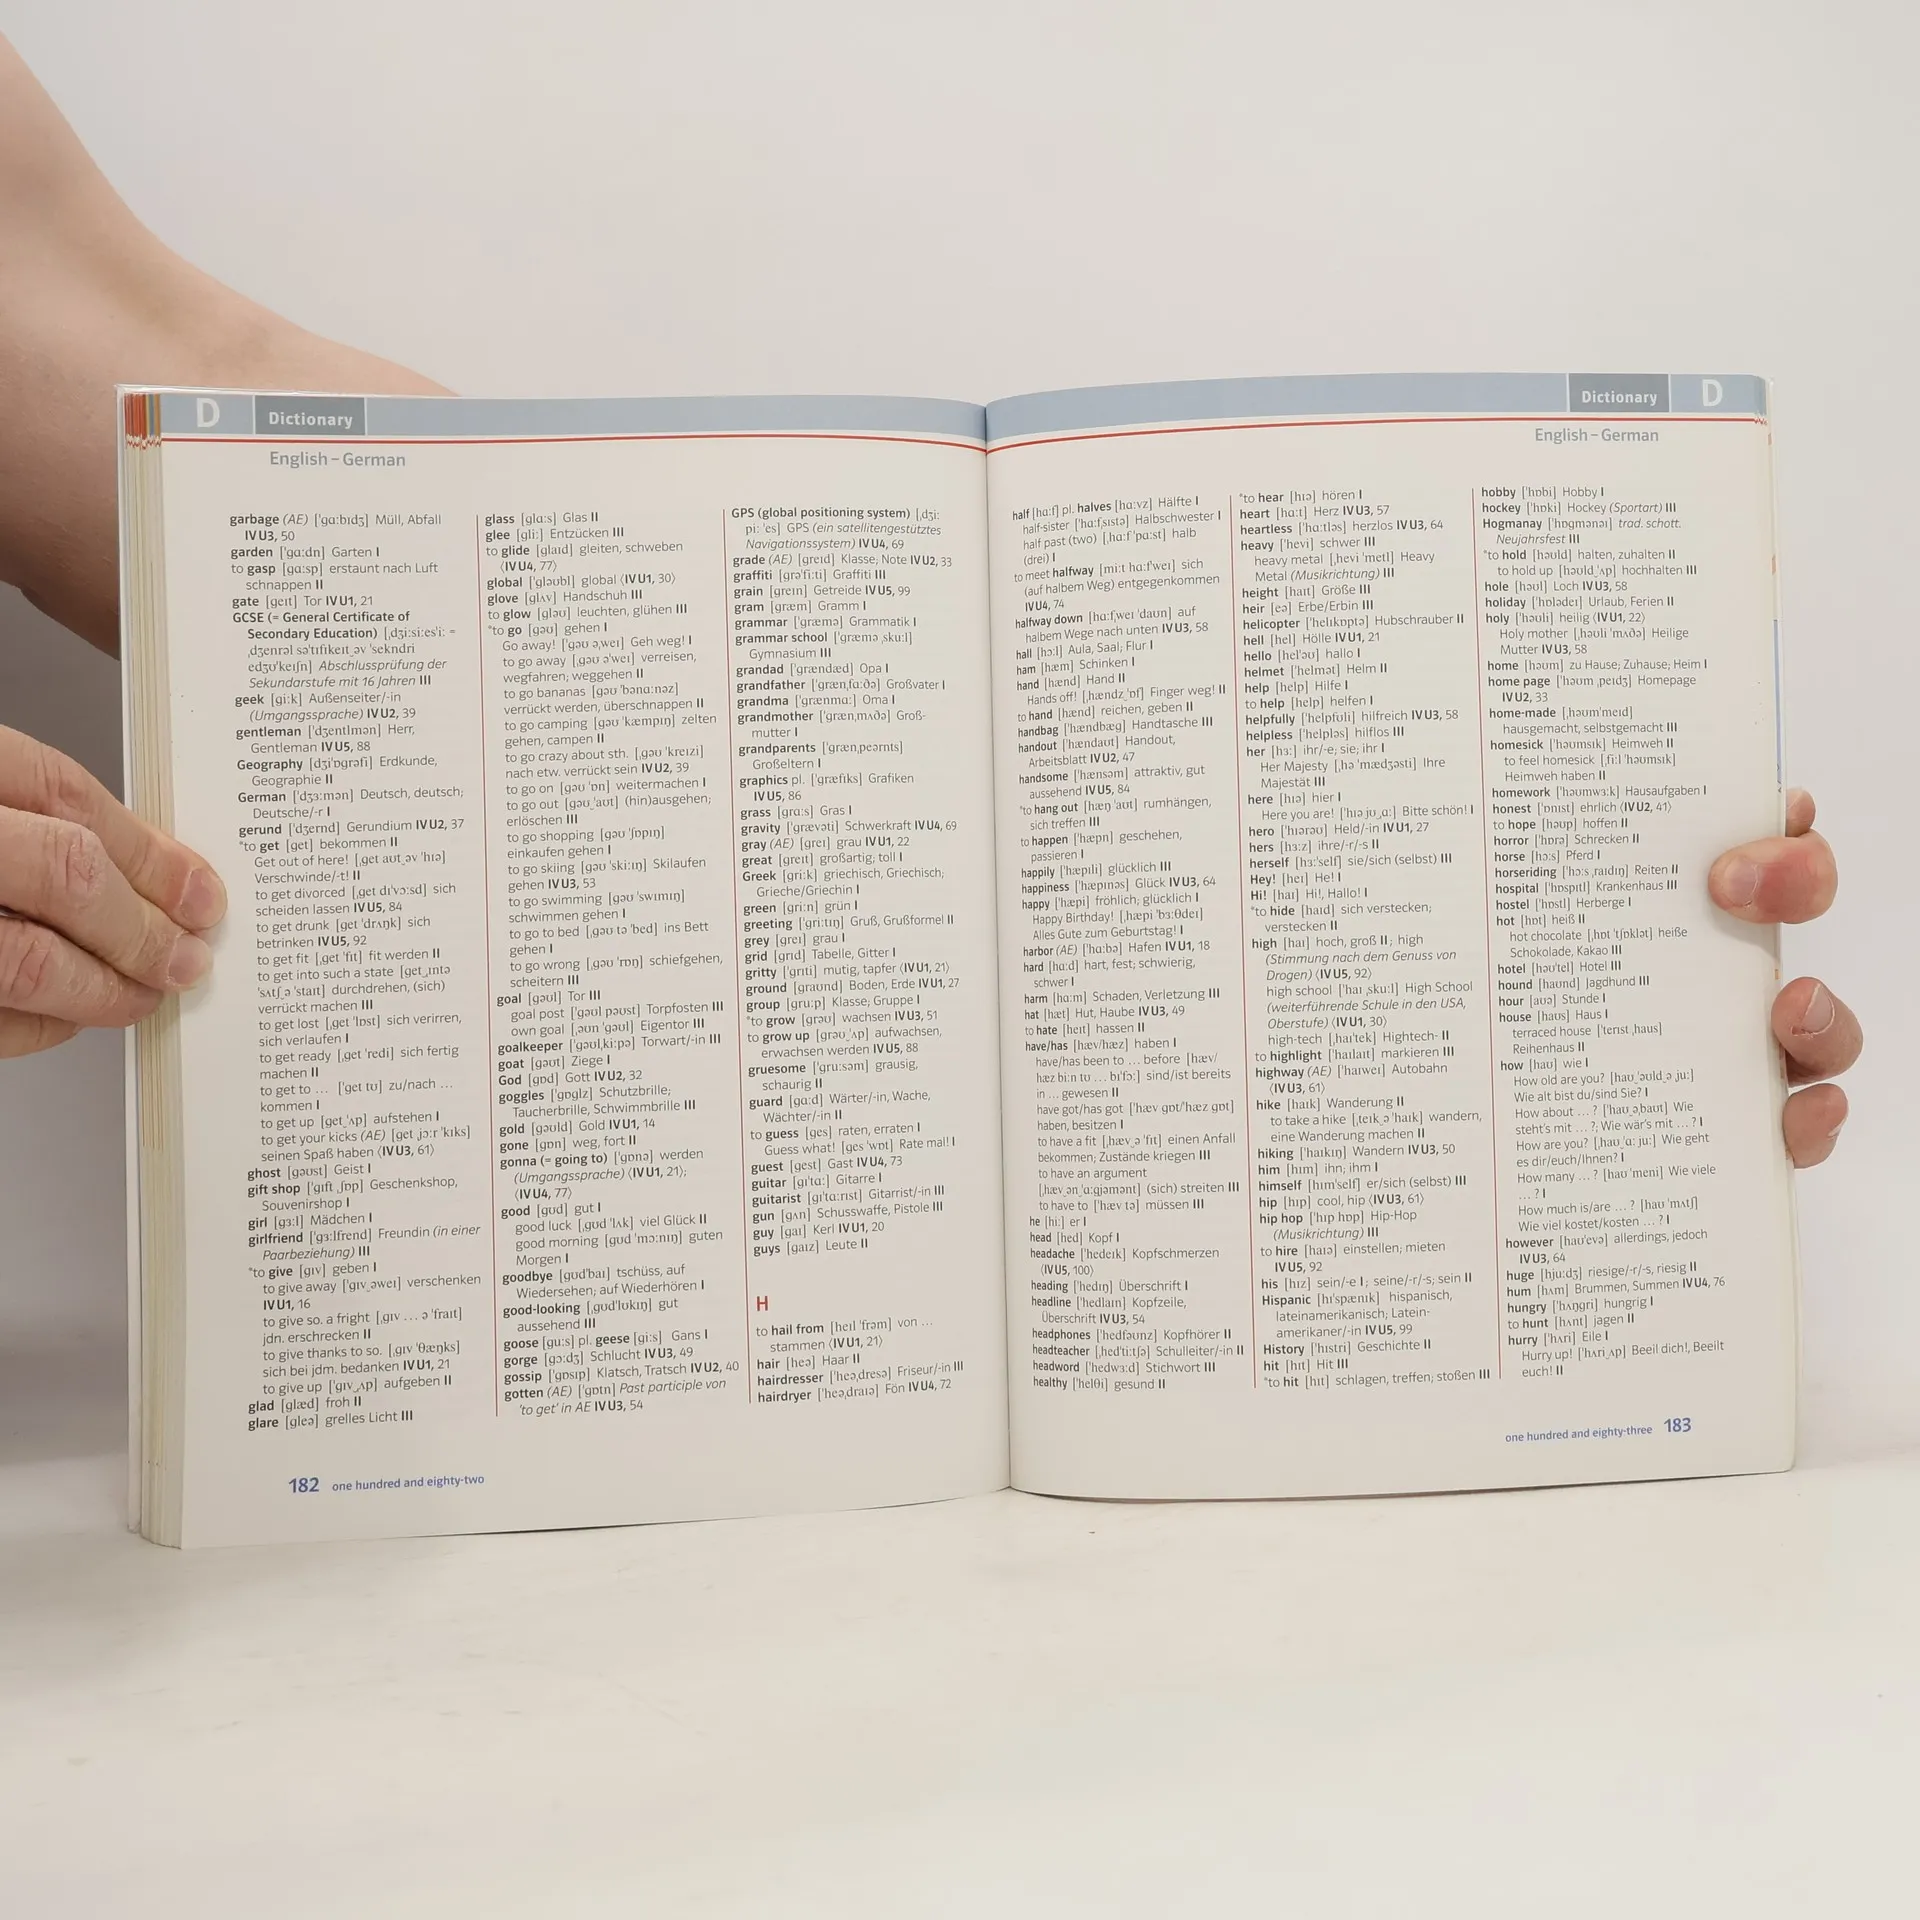 D Dictionary
English – German
garbage (AE) ['gɑːbɪdʒ] Müll, Abfall
IV U3, 50
garden ['gɑːdn] Garten I
to gasp [gɑːsp] erstaunt nach Luft
schnappen II
gate [geɪt] Tor IV U1, 21
GCSE (= General Certificate of
Secondary Education) [ˌdʒiːsiːes'iː =
ˌdʒenrəl sə'tɪfɪkeɪt‿əv 'sekndri
edʒʊ'keɪʃn] Abschlussprüfung der
Sekundarstufe mit 16 Jahren III
geek [giːk] Außenseiter/-in
(Umgangssprache) IV U2, 39
gentleman ['dʒentlmən] Herr,
Gentleman IV U5, 88
Geography [dʒi'ɒgrəfi] Erdkunde,
Geographie II
German ['dʒɜːmən] Deutsch, deutsch;
Deutsche/-r I
gerund ['dʒernd] Gerundium IV U2, 37
*to get [get] bekommen II
Get out of here! [ˌget aʊt‿əv 'hɪə]
Verschwinde/-t! II
to get divorced [ˌget dɪ'vɔːsd] sich
scheiden lassen IV U5, 84
to get drunk [get 'drʌŋk] sich
betrinken IV U5, 92
to get fit [ˌget 'fɪt] fit werden II
to get into such a state [get‿ɪntə
'sʌtʃ‿ə 'staɪt] durchdrehen, (sich)
verrückt machen III
to get lost [ˌget 'lɒst] sich verirren,
sich verlaufen I
to get ready [ˌget 'redi] sich fertig
machen II
to get to … ['get tʊ] zu/nach …
kommen I
to get up [get‿'ʌp] aufstehen I
to get your kicks (AE) [get ˌjɔːr 'kɪks]
seinen Spaß haben ⟨IV U3, 61⟩
ghost [gəʊst] Geist I
gift shop ['gɪft ˌʃɒp] Geschenkshop,
Souvenirshop I
girl [gɜːl] Mädchen I
girlfriend ['gɜːlfrend] Freundin (in einer
Paarbeziehung) III
*to give [gɪv] geben I
to give away ['gɪv‿əweɪ] verschenken
IV U1, 16
to give so. a fright [ˌgɪv … ə 'fraɪt]
jdn. erschrecken II
to give thanks to so. [ˌgɪv 'θæŋks]
sich bei jdm. bedanken IV U1, 21
to give up ['gɪv‿ʌp] aufgeben II
glad [glæd] froh II
glare [gleə] grelles Licht III
glass [glɑːs] Glas II
glee [gliː] Entzücken III
to glide [glaɪd] gleiten, schweben
⟨IV U4, 77⟩
global ['gləʊbl] global ⟨IV U1, 30⟩
glove [glʌv] Handschuh III
to glow [gləʊ] leuchten, glühen III
*to go [gəʊ] gehen I
Go away! ['gəʊ ə,weɪ] Geh weg! I
to go away [ˌgəʊ ə'weɪ] verreisen,
wegfahren; weggehen II
to go bananas [gəʊ 'bənɑːnəz]
verrückt werden, überschnappen II
to go camping [gəʊ 'kæmpɪŋ] zelten
gehen, campen II
to go crazy about sth. [ˌgəʊ 'kreɪzi]
nach etw. verrückt sein IV U2, 39
to go on [gəʊ 'ɒn] weitermachen I
to go out [gəʊ‿'aʊt] (hin)ausgehen;
erlöschen III
to go shopping [gəʊ 'ʃɒpɪŋ]
einkaufen gehen I
to go skiing [gəʊ 'skiːɪŋ] Skilaufen
gehen IV U3, 53
to go swimming [gəʊ 'swɪmɪŋ]
schwimmen gehen I
to go to bed [ˌgəʊ tə 'bed] ins Bett
gehen I
to go wrong [ˌgəʊ 'rɒŋ] schiefgehen,
scheitern III
goal [gəʊl] Tor III
goal post ['gəʊl pəʊst] Torpfosten III
own goal [ˌəʊn 'gəʊl] Eigentor III
goalkeeper ['gəʊlˌkiːpə] Torwart/-in III
goat [gəʊt] Ziege I
God [gɒd] Gott IV U2, 32
goggles ['gɒglz] Schutzbrille;
Taucherbrille, Schwimmbrille III
gold [gəʊld] Gold IV U1, 14
gone [gɒn] weg, fort II
gonna (= going to) ['gɒnə] werden
(Umgangssprache) ⟨IV U1, 21⟩;
⟨IV U4, 77⟩
good [gʊd] gut I
good luck [ˌgʊd 'lʌk] viel Glück II
good morning [gʊd 'mɔːnɪŋ] guten
Morgen I
goodbye [gʊd'baɪ] tschüss, auf
Wiedersehen; auf Wiederhören I
good-looking [ˌgʊd'lʊkɪŋ] gut
aussehend III
goose [guːs] pl. geese [giːs] Gans I
gorge [gɔːdʒ] Schlucht IV U3, 49
gossip ['gɒsɪp] Klatsch, Tratsch IV U2, 40
gotten (AE) ['gɒtn] Past participle von
'to get' in AE IV U3, 54
GPS (global positioning system) [ˌdʒiː
piː 'es] GPS (ein satellitengestütztes
Navigationssystem) IV U4, 69
grade (AE) [greɪd] Klasse; Note IV U2, 33
graffiti [grə'fiːti] Graffiti III
grain [greɪn] Getreide IV U5, 99
gram [græm] Gramm I
grammar ['græmə] Grammatik I
grammar school ['græmə ˌskuːl]
Gymnasium III
grandad ['grændæd] Opa I
grandfather ['græn,fɑːðə] Großvater I
grandma ['grænmɑː] Oma I
grandmother ['græn,mʌðə] Groß-
mutter I
grandparents ['græn,peərnts]
Großeltern I
graphics pl. ['græfɪks] Grafiken
IV U5, 86
grass [grɑːs] Gras I
gravity ['grævəti] Schwerkraft IV U4, 69
gray (AE) [greɪ] grau IV U1, 22
great [greɪt] großartig; toll I
Greek [griːk] griechisch, Griechisch;
Grieche/Griechin I
green [griːn] grün I
greeting ['griːtɪŋ] Gruß, Grußformel II
grey [greɪ] grau I
grid [grɪd] Tabelle, Gitter I
gritty ['grɪti] mutig, tapfer ⟨IV U1, 21⟩
ground [graʊnd] Boden, Erde IV U1, 27
group [gruːp] Klasse; Gruppe I
*to grow [grəʊ] wachsen IV U3, 51
to grow up [grəʊ‿'ʌp] aufwachsen,
erwachsen werden IV U5, 88
gruesome ['gruːsəm] grausig,
schaurig II
guard [gɑːd] Wärter/-in, Wache,
Wächter/-in II
to guess [ges] raten, erraten I
Guess what! [ges 'wɒt] Rate mal! I
guest [gest] Gast IV U4, 73
guitar [gɪ'tɑː] Gitarre I
guitarist [gɪ'tɑːrɪst] Gitarrist/-in III
gun [gʌn] Schusswaffe, Pistole III
guy [gaɪ] Kerl IV U1, 20
guys [gaɪz] Leute II
H
to hail from [heɪl 'frəm] von …
stammen ⟨IV U1, 21⟩
hair [heə] Haar II
hairdresser ['heə,dresə] Friseur/-in III
hairdryer ['heə,draɪə] Fön IV U4, 72
182 one hundred and eighty-two
Dictionary D
English – German
half [hɑːf] pl. halves [hɑːvz] Hälfte I
half-sister ['hɑːf,sɪstə] Halbschwester I
half past (two) [ˌhɑːf 'pɑːst] halb
(drei) I
to meet halfway [miːt hɑːf'weɪ] sich
(auf halbem Weg) entgegenkommen
IV U4, 74
halfway down [hɑːf,weɪ 'daʊn] auf
halbem Wege nach unten IV U3, 58
hall [hɔːl] Aula, Saal; Flur I
ham [hæm] Schinken I
hand [hænd] Hand II
Hands off! [ˌhændz 'ɒf] Finger weg! II
to hand [hænd] reichen, geben II
handbag ['hændbæg] Handtasche III
handout ['hændaʊt] Handout,
Arbeitsblatt IV U2, 47
handsome ['hænsəm] attraktiv, gut
aussehend IV U5, 84
*to hang out [hæŋ 'aʊt] rumhängen,
sich treffen III
to happen ['hæpn] geschehen,
passieren I
happily ['hæpɪli] glücklich III
happiness ['hæpɪnəs] Glück IV U3, 64
happy ['hæpi] fröhlich; glücklich I
Happy Birthday! [ˌhæpi 'bɜːθdeɪ]
Alles Gute zum Geburtstag! I
harbor (AE) ['hɑːbə] Hafen IV U1, 18
hard [hɑːd] hart, fest; schwierig,
schwer I
harm [hɑːm] Schaden, Verletzung III
hat [hæt] Hut, Haube IV U3, 49
to hate [heɪt] hassen II
have/has [hæv/hæz] haben I
have/has been to … before [hæv/
hæz biːn tʊ … bɪ'fɔː] sind/ist bereits
in … gewesen II
have got/has got ['hæv gɒt/'hæz gɒt]
haben, besitzen I
to have a fit [ˌhæv‿ə 'fɪt] einen Anfall
bekommen; Zustände kriegen III
to have an argument
[ˌhæv‿ən‿'ɑːgjəmənt] (sich) streiten III
to have to ['hæv tə] müssen III
he [hiː] er I
head [hed] Kopf I
headache ['hedeɪk] Kopfschmerzen
⟨IV U5, 100⟩
heading ['hedɪŋ] Überschrift I
headline ['hedlaɪn] Kopfzeile,
Überschrift IV U3, 54
headphones ['hedfəʊnz] Kopfhörer II
headteacher [ˌhed'tiːtʃə] Schulleiter/-in II
headword ['hedwɜːd] Stichwort III
healthy ['helθi] gesund II
*to hear [hɪə] hören I
heart [hɑːt] Herz IV U3, 57
heartless ['hɑːtləs] herzlos IV U3, 64
heavy ['hevi] schwer III
heavy metal [ˌhevi 'metl] Heavy
Metal (Musikrichtung) III
height [haɪt] Größe III
heir [eə] Erbe/Erbin III
helicopter ['helɪkɒptə] Hubschrauber II
hell [hel] Hölle IV U1, 21
hello [hel'əʊ] hallo I
helmet ['helmət] Helm II
help [help] Hilfe I
to help [help] helfen I
helpfully ['helpfʊli] hilfreich IV U3, 58
helpless ['helpləs] hilflos III
her [hɜː] ihr/-e; sie; ihr I
Her Majesty [ˌhə 'mædʒəsti] Ihre
Majestät III
here [hɪə] hier I
Here you are! ['hɪə jʊ‿ɑː] Bitte schön! I
hero ['hɪərəʊ] Held/-in IV U1, 27
hers [hɜːz] ihre/-r/-s II
herself [hɜː'self] sie/sich (selbst) III
Hey! [heɪ] He! I
Hi! [haɪ] Hi!, Hallo! I
*to hide [haɪd] sich verstecken;
verstecken II
high [haɪ] hoch, groß II; high
(Stimmung nach dem Genuss von
Drogen) ⟨IV U5, 92⟩
high school ['haɪ ˌskuːl] High School
(weiterführende Schule in den USA,
Oberstufe) ⟨IV U1, 30⟩
high-tech [ˌhaɪ'tek] Hightech- II
to highlight ['haɪlaɪt] markieren III
highway (AE) ['haɪweɪ] Autobahn
⟨IV U3, 61⟩
hike [haɪk] Wanderung II
to take a hike [ˌteɪk‿ə 'haɪk] wandern,
eine Wanderung machen II
hiking ['haɪkɪŋ] Wandern IV U3, 50
him [hɪm] ihn; ihm I
himself [hɪm'self] er/sich (selbst) III
hip [hɪp] cool, hip ⟨IV U3, 61⟩
hip hop ['hɪp hɒp] Hip-Hop
(Musikrichtung) III
to hire [haɪə] einstellen; mieten
IV U5, 92
his [hɪz] sein/-e I; seine/-r/-s; sein II
Hispanic [hɪ'spænɪk] hispanisch,
lateinamerikanisch; Latein-
amerikaner/-in IV U5, 99
History ['hɪstri] Geschichte II
hit [hɪt] Hit III
*to hit [hɪt] schlagen, treffen; stoßen III
hobby ['hɒbi] Hobby I
hockey ['hɒki] Hockey (Sportart) III
Hogmanay ['hɒgmənaɪ] trad. schott.
Neujahrsfest III
*to hold [həʊld] halten, zuhalten II
to hold up [həʊld‿'ʌp] hochhalten III
hole [həʊl] Loch IV U3, 58
holiday ['hɒlədeɪ] Urlaub, Ferien II
holy ['həʊli] heilig ⟨IV U1, 22⟩
Holy mother [ˌhəʊli 'mʌðə] Heilige
Mutter IV U3, 58
home [həʊm] zu Hause; Zuhause; Heim I
home page ['həʊm ˌpeɪdʒ] Homepage
IV U2, 33
home-made [ˌhəʊm'meɪd]
hausgemacht, selbstgemacht III
homesick ['həʊmsɪk] Heimweh II
to feel homesick [ˌfiːl 'həʊmsɪk]
Heimweh haben II
homework ['həʊmwɜːk] Hausaufgaben I
honest ['ɒnɪst] ehrlich ⟨IV U2, 41⟩
to hope [həʊp] hoffen II
horror ['hɒrə] Schrecken II
horse [hɔːs] Pferd I
horseriding ['hɔːsˌraɪdɪŋ] Reiten II
hospital ['hɒspɪtl] Krankenhaus III
hostel ['hɒstl] Herberge I
hot [hɒt] heiß II
hot chocolate [ˌhɒt 'tʃɒklət] heiße
Schokolade, Kakao III
hotel [həʊ'tel] Hotel III
hound [haʊnd] Jagdhund III
hour [aʊə] Stunde I
house [haʊs] Haus I
terraced house ['terɪst ˌhaʊs]
Reihenhaus II
how [haʊ] wie I
How old are you? [haʊ‿'əʊld‿ə juː]
Wie alt bist du/sind Sie? I
How about … ? ['haʊ‿ə,baʊt] Wie
steht's mit … ?; Wie wär's mit … ? I
How are you? [ˌhaʊ‿'ɑː juː] Wie geht
es dir/euch/Ihnen? I
How many … ? [haʊ 'meni] Wie viele
… ? I
How much is/are … ? [haʊ 'mʌtʃ]
Wie viel kostet/kosten … ? I
however [haʊ'evə] allerdings, jedoch
IV U3, 64
huge [hjuːdʒ] riesige/-r/-s, riesig II
hum [hʌm] Brummen, Summen IV U4, 76
hungry ['hʌŋgri] hungrig I
to hunt [hʌnt] jagen II
hurry ['hʌri] Eile I
Hurry up! ['hʌri‿ʌp] Beeil dich!, Beeilt
euch! II
one hundred and eighty-three 183